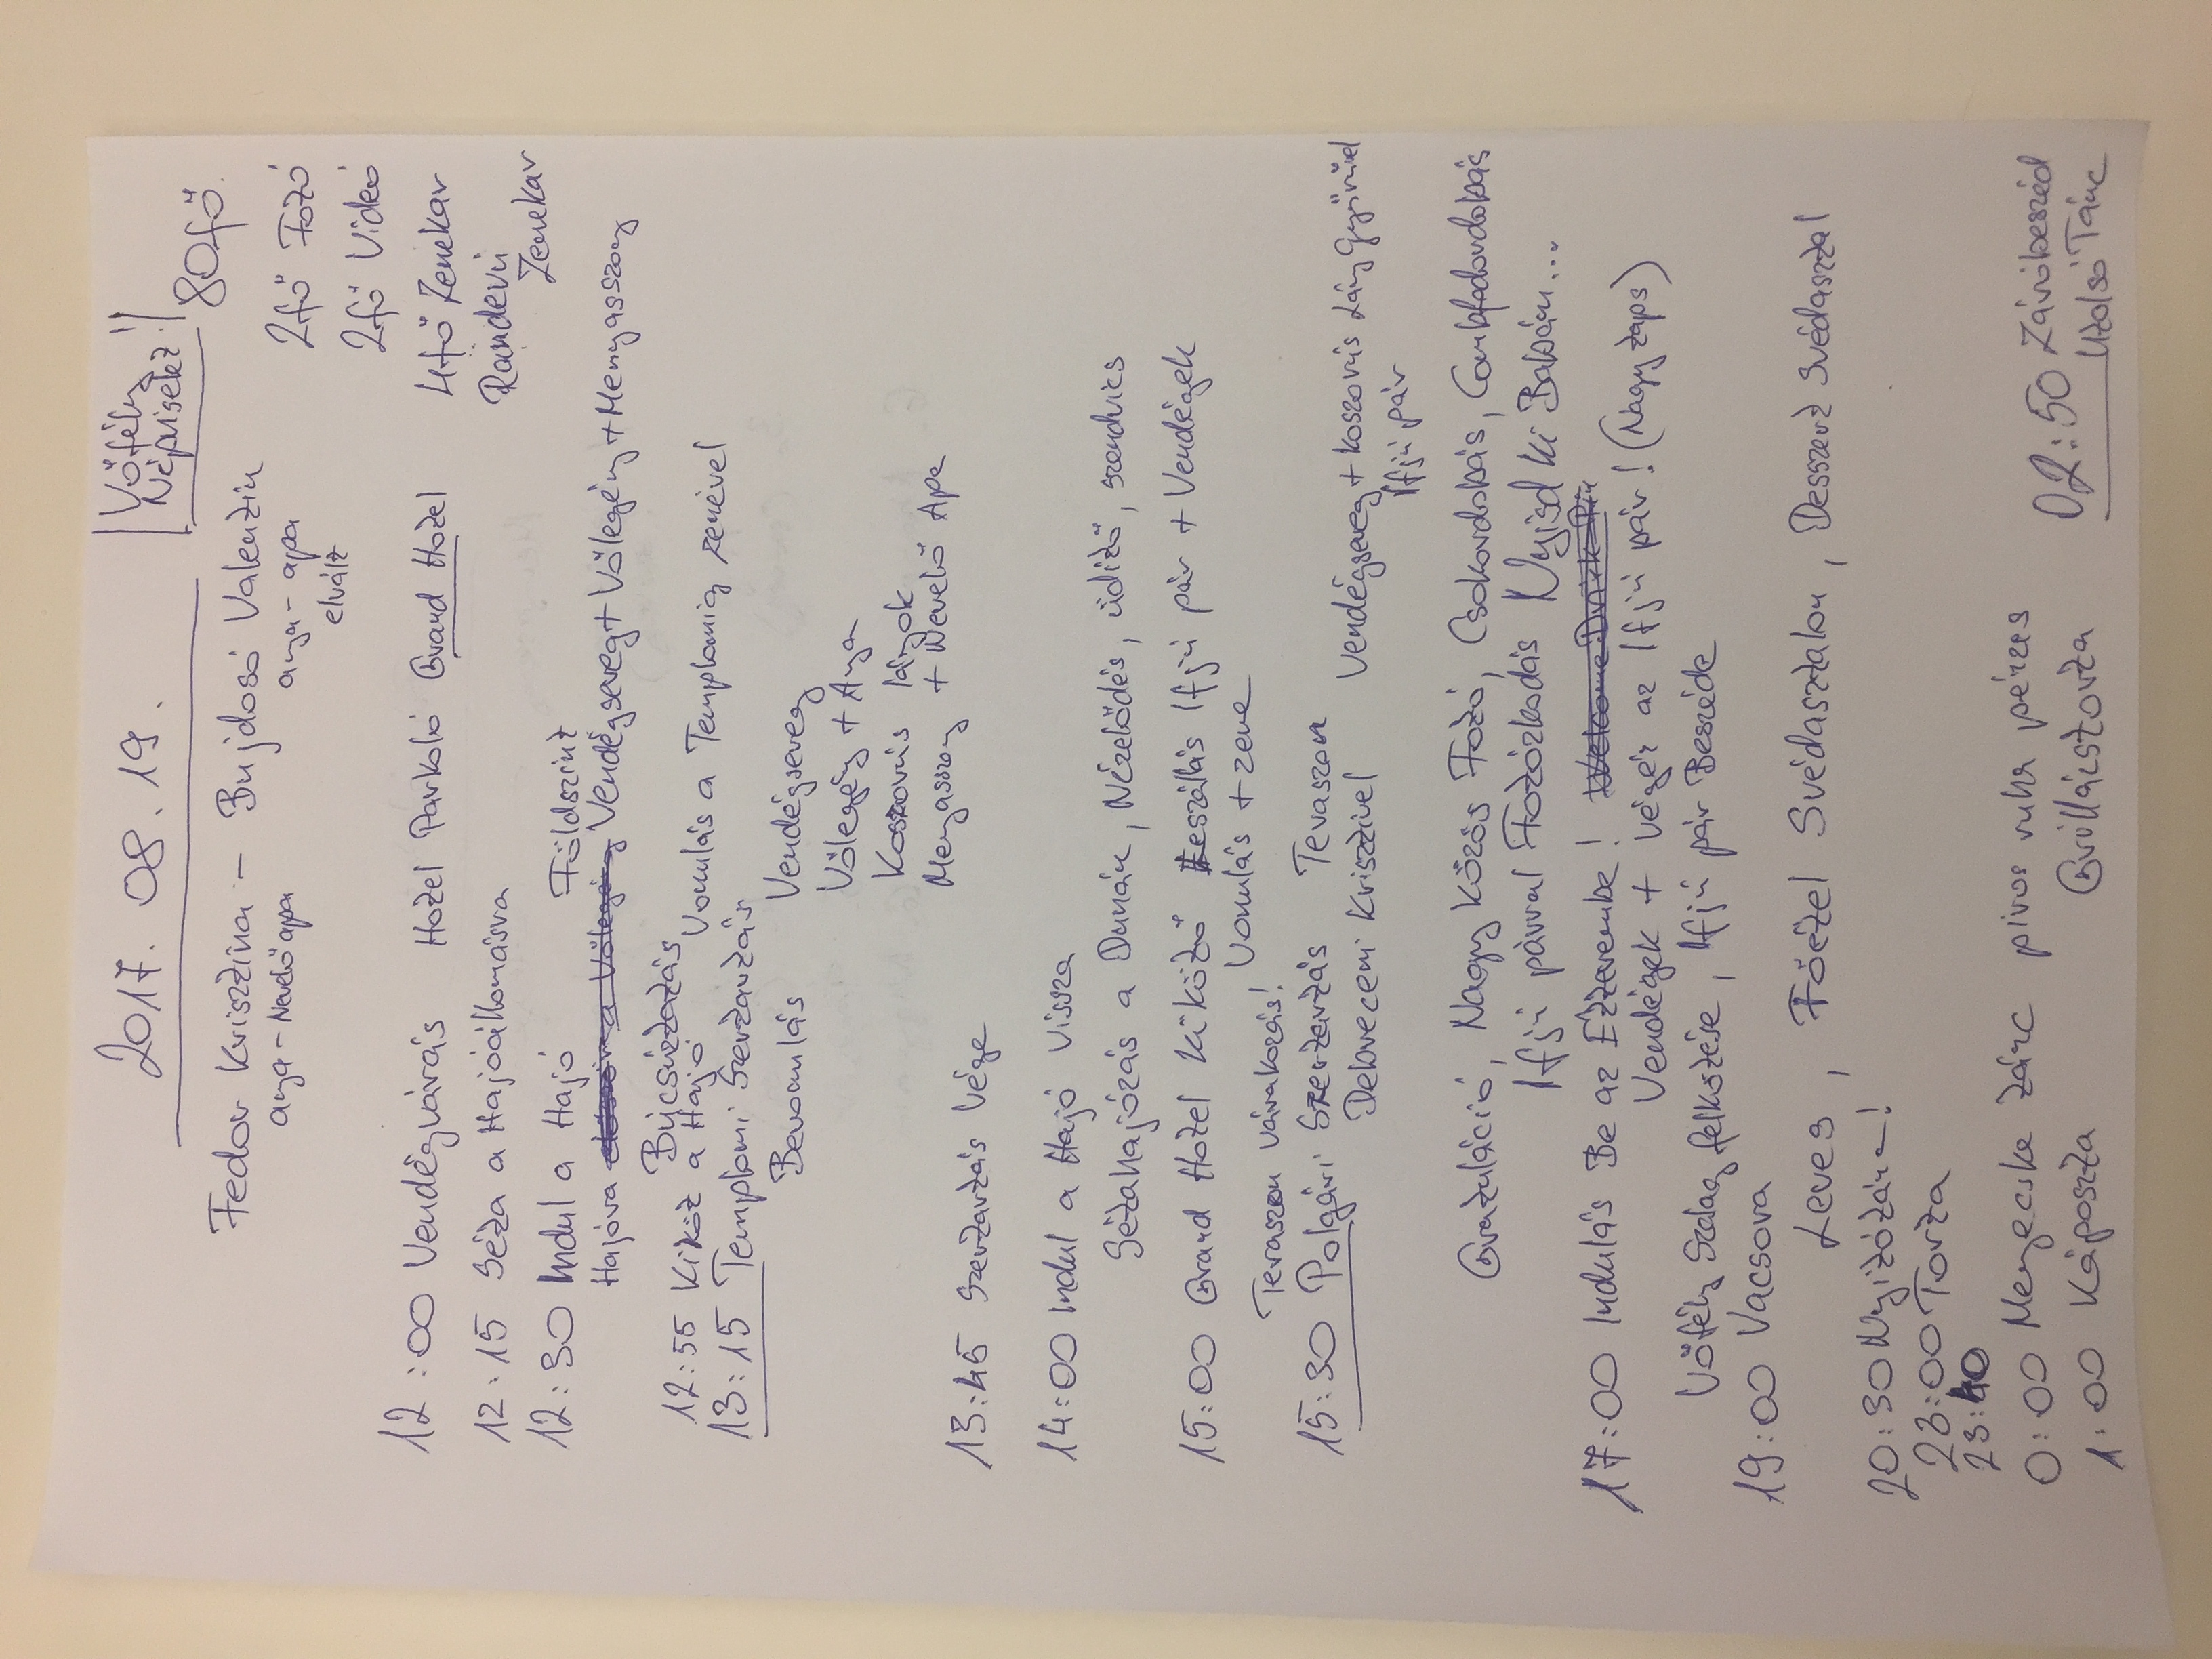 2017. 08. 19.
Vőfély !
Népviselet !
80fő.
Fedor Krisztina – Bujdosó Valentin
anya – Nevelő apa
anya – apa
elvált
2fő Fotó
2fő Videó
4fő Zenekar
Randevú
Zenekar
12:00 Vendégvárás Hotel Parkoló Grand Hotel
12:15 Séta a Hajóállomásra
12:30 Indul a Hajó Földszint
Hajóra először a Vőlegény Vendégsereg + Vőlegény + Menyasszony
Búcsúztatás
12:55 Kiköt a Hajó Vonulás a Templomig zenével
13:15 Templomi Szertartás
Bevonulás Vendégsereg
Vőlegény + Anya
Koszorús lányok
Menyasszony + Nevelő Apa
13:45 Szertartás Vége
14:00 Indul a Hajó Vissza
Sétahajózás a Dunán, Nézelődés, üdítő, szendvics
15:00 Grand Hotel Kikötő Leszállás Ifjú pár + Vendégek
Vonulás + zene
Teraszon várakozás!
15:30 Polgári Szertartás Teraszon
Debreceni Krisztivel Vendégsereg + Koszorús Lány Gyűrűvel
Ifjú pár
Gratuláció, Nagy Közös Fotó, Csokordobás, Combfedordobás
Ifjú párral Fotózkodás Nyisd ki Babám...
17:00 Indulás Be az Étterembe! Welcome Drink
Vendégek + végén az Ifjú pár! (Nagy taps)
Vőfély Szalag felkötése, Ifjú pár Beszéde
19:00 Vacsora
Leves, Főétel Svédasztalon, Desszert Svédasztal
20:30 Nyitótánc!
23:00 Torta
23:40
0:00 Menyecske tánc piros ruha pénzes
1:00 Káposzta Grillázstorta
02:50 Záróbeszéd
Utolsó Tánc